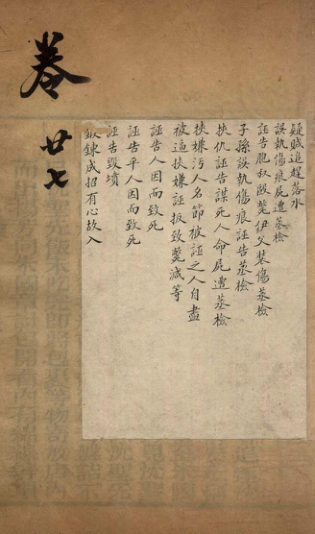 卷
廿七
疑賊追趕落水
誤執傷痕屍遭蒸檢
誣告胞叔毆斃伊父裝傷蒸檢
子孫誤執傷痕誣告蒸檢
挾仇誣告謀死人命屍遭蒸檢
挾嫌污人名節被誣之人自盡
被逼挾嫌誣扳致斃減等
誣告人因而致死
誣告平人因而致死
誣告毀墳
鍛鍊成招有心故入